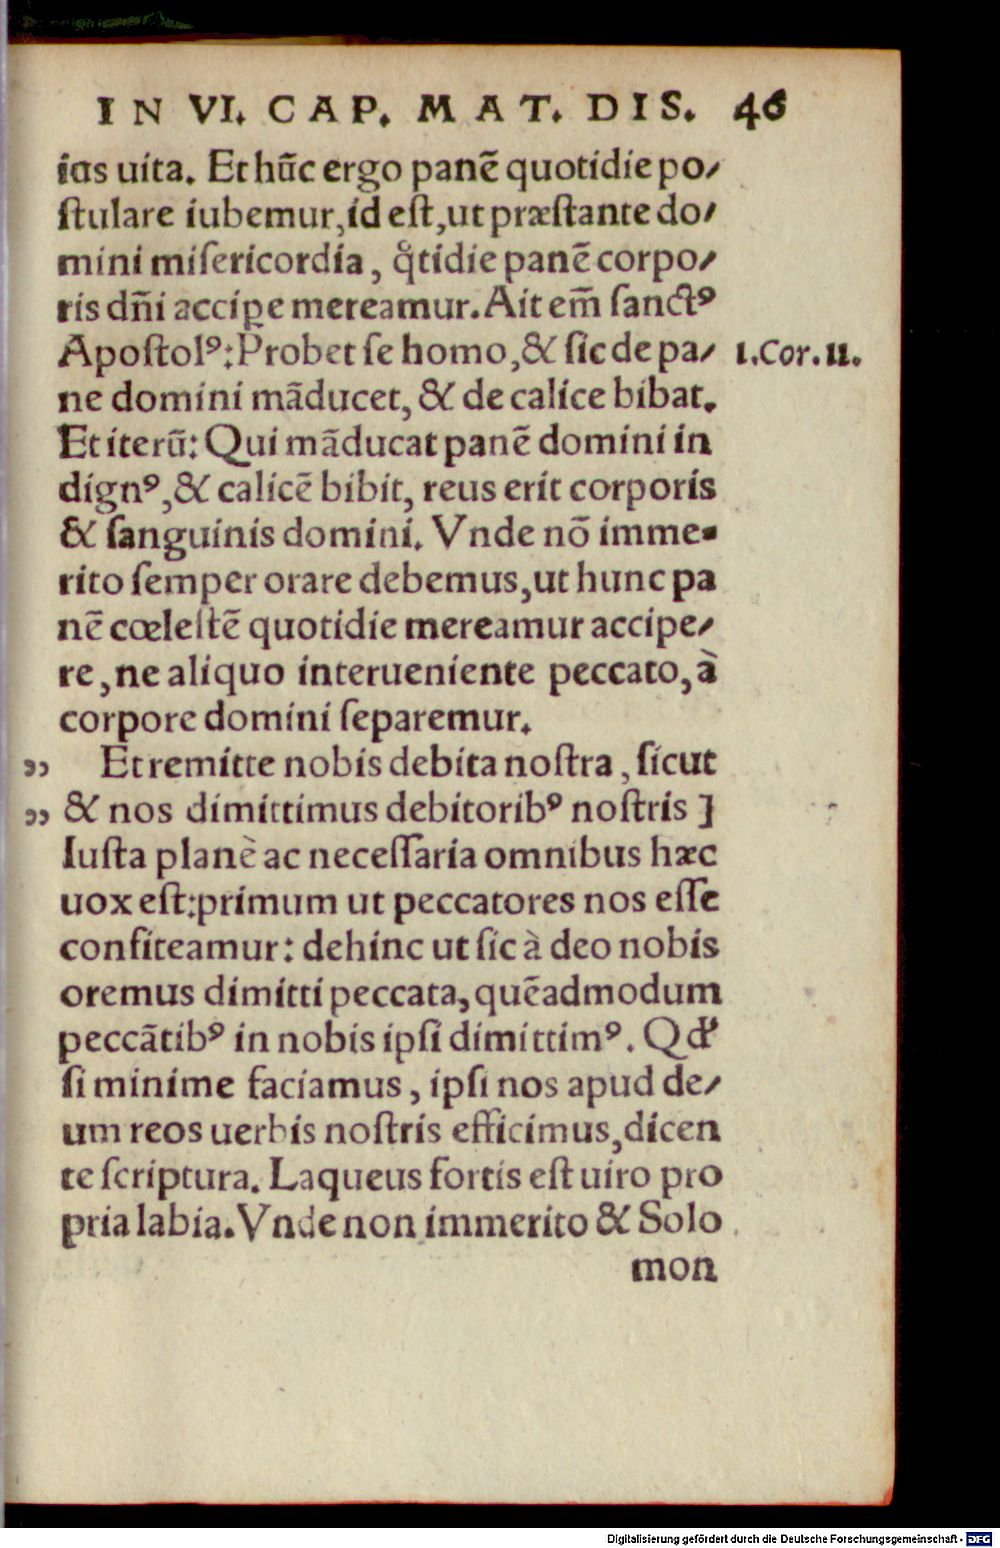 IN VI. CAP. MAT. DIS. 46
ias uita. Et hūc ergo panē quotidie po⸗
ſtulare iubemur, id eſt, ut præſtante do⸗
mini miſericordia, qͥtidie panē corpo⸗
ris dñi acciꝑe mereamur. Ait em̄ ſanctꝰ
Apoſtolꝰ: Probet ſe homo, & ſic de pa⸗
1. Cor. 11.
ne domini māducet, & de calice bibat.
Et iterū: Qui māducat panē domini in
dignꝰ, & calicē bibit, reus erit corporis
& ſanguinis domini. Vnde nō imme⸗
rito ſemper orare debemus, ut hunc pa
nē cœleſtē quotidie mereamur accipe⸗
re, ne aliquo interueniente peccato, à
corpore domini ſeparemur.
„ Et remitte nobis debita noſtra, ſicut
„ & nos dimittimus debitoribꝰ noſtris ]
Iuſta planè ac neceſſaria omnibus hæc
uox eſt: primum ut peccatores nos eſſe
confiteamur: dehinc ut ſic à deo nobis
oremus dimitti peccata, quēadmodum
peccātibꝰ in nobis ipſi dimittimꝰ. Qd'
ſi minime faciamus, ipſi nos apud de⸗
um reos uerbis noſtris efficimus, dicen
te ſcriptura. Laqueus fortis eſt uiro pro
pria labia. Vnde non immerito & Solo
mon
Digitalisierung gefördert durch die Deutsche Forschungsgemeinschaft - DFG